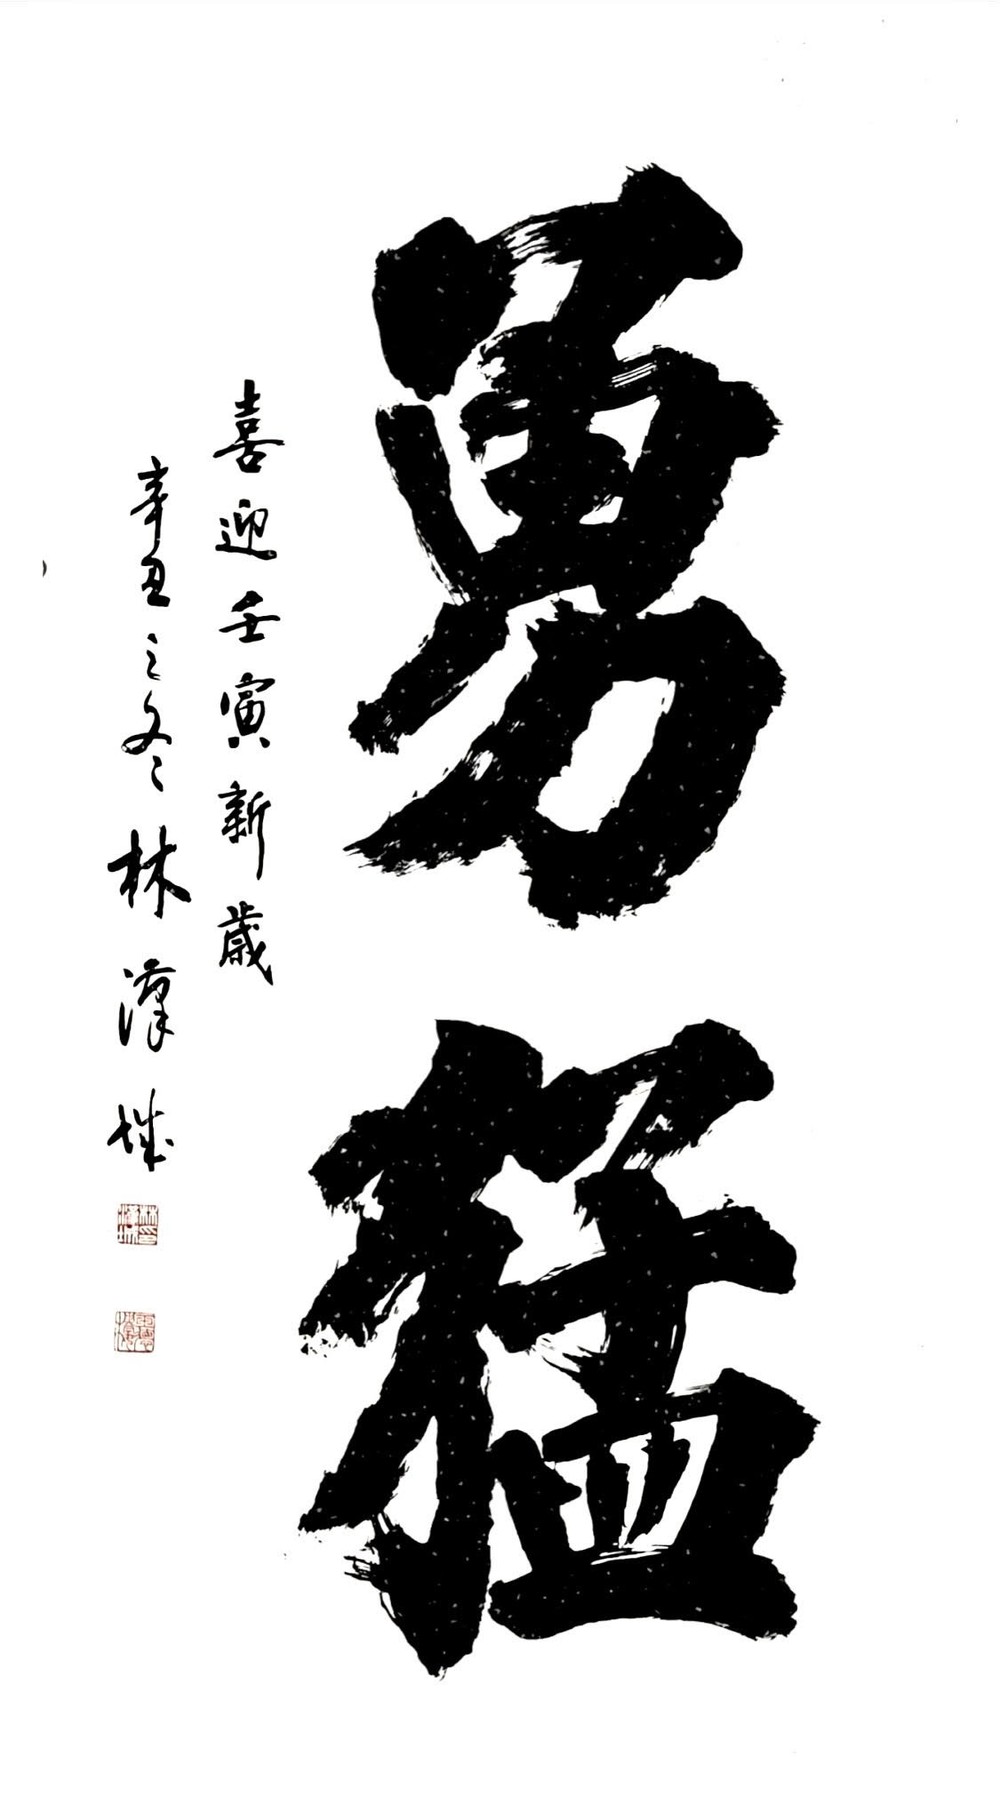 勇猛
喜迎壬寅新歲
辛丑之冬林漢城